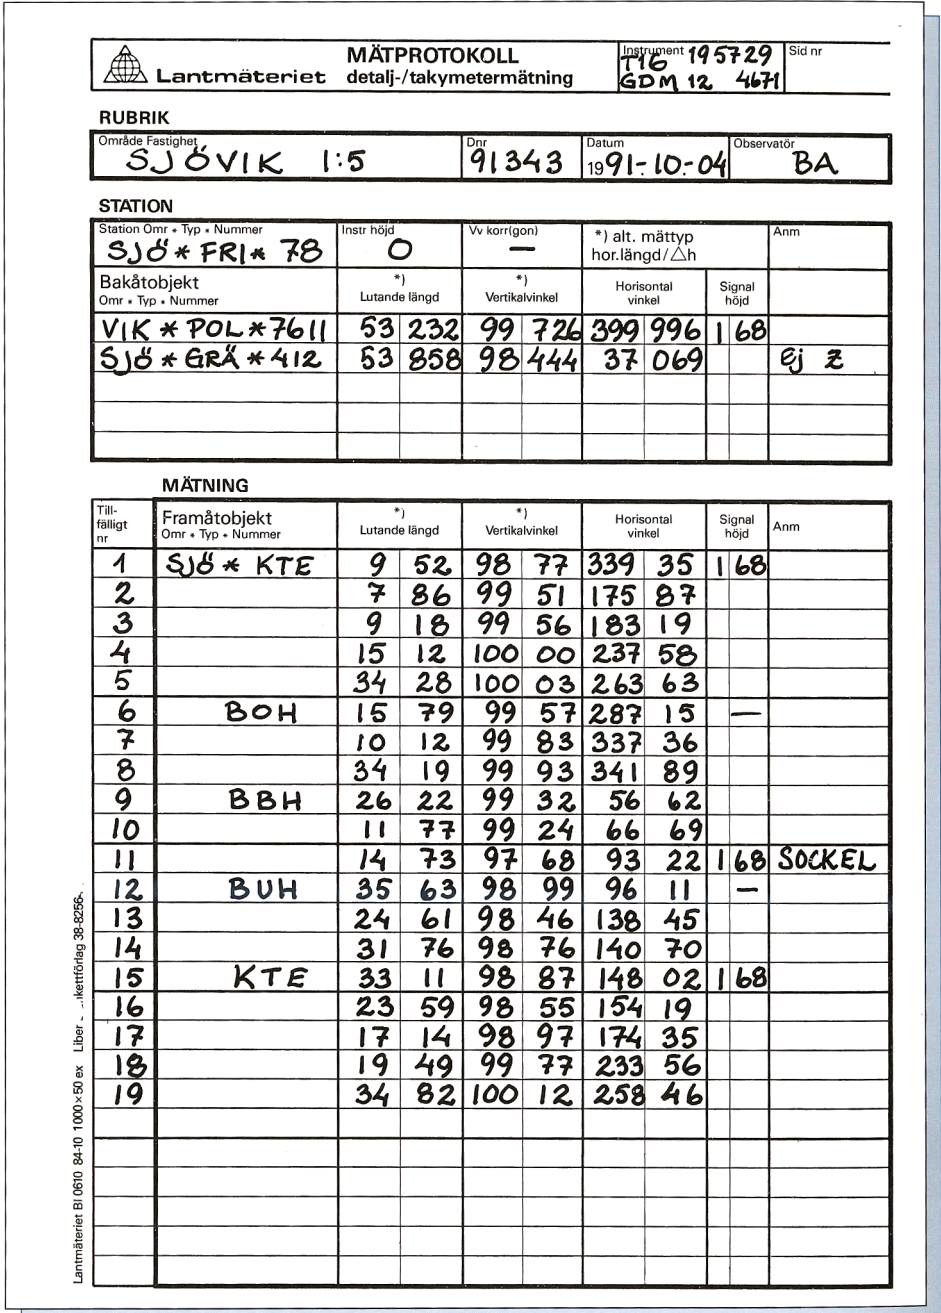 Lantmäteriet
MÄTPROTOKOLL
detalj-/takymetermätning
Instrument T16 195729
GDM 12 4671
Sid nr
RUBRIK
Område Fastighet SJÖVIK 1:5
Dnr 91343
Datum 1991-10-04
Observatör BA
STATION
Station Omr * Typ * Nummer SJÖ * FRI * 78
Instr höjd 0
Vv korr(gon) —
*) alt. mättyp
hor.längd/△h
Anm
Bakåtobjekt
Omr * Typ * Nummer
*) Lutande längd
*) Vertikalvinkel
Horisontal vinkel
Signal höjd
VIK * POL * 7611 53 232 99 726 399 996 1 68
SJÖ * GRÄ * 412 53 858 98 444 37 069 Ej Z
MÄTNING
Till-fälligt nr
Framåtobjekt
Omr * Typ * Nummer
*) Lutande längd
*) Vertikalvinkel
Horisontal vinkel
Signal höjd
Anm
1 SJÖ * KTE 9 52 98 77 339 35 1 68
2 7 86 99 51 175 87
3 9 18 99 56 183 19
4 15 12 100 00 237 58
5 34 28 100 03 263 63
6 BOH 15 79 99 57 287 15 —
7 10 12 99 83 337 36
8 34 19 99 93 341 89
9 BBH 26 22 99 32 56 62
10 11 77 99 24 66 69
11 14 73 97 68 93 22 1 68 SOCKEL
12 BUH 35 63 98 99 96 11 —
13 24 61 98 46 138 45
14 31 76 98 76 140 70
15 KTE 33 11 98 87 148 02 1 68
16 23 59 98 55 154 19
17 17 14 98 97 174 35
18 19 49 99 77 233 56
19 34 82 100 12 258 46
Lantmäteriet Bl 0610 84-10 1000×50 ex Liber